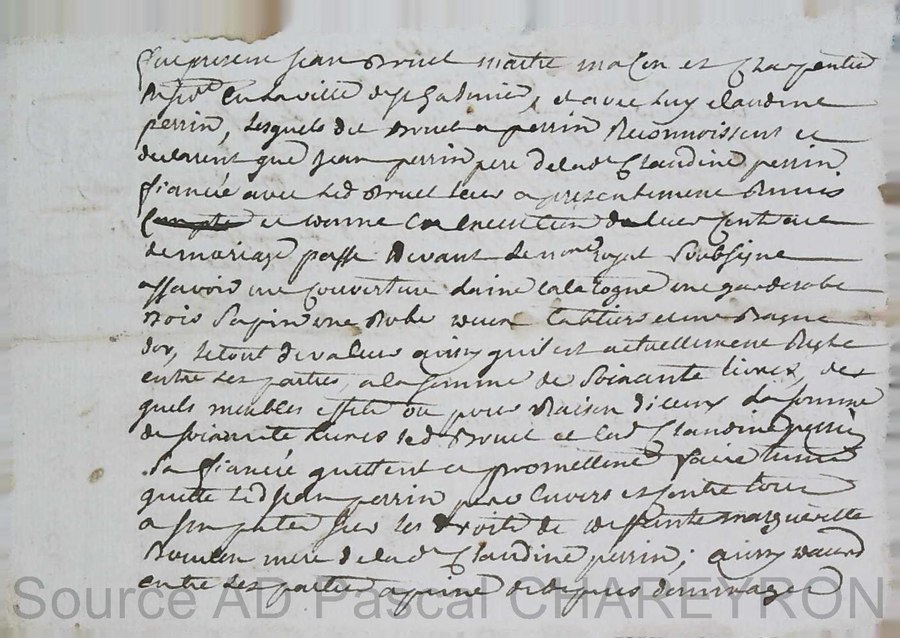 fut present jean Bruel maitre mason et charpentier
en la ville de st et avec luy claudine
perrin, lesquels dit Bruel et perrin Reconnoissent et
declarent que jean perrin pere de lade Claudine perrin
fiancée avec led Bruel leur a presentement Remis
Compte et comme en execution de leur Contract
de mariage passé devant le nore royal soubsigne
assavoir une couverture laine catalogne une garderobe
bois sapin une Robe et une Bague
dor, le tout de valeur ainsy quil est actuellement Regle
entre les parties, a la somme de soixante livres, des
quels meubles effets ou pour Raison diceux la somme
de soixante livres led Bruel et lad Claudine perrin
sa fiancée quittent et promettent faire tenir
quitte led jean perrin pere envers et contre tous
a imputer sur les droits de deffunte margueritte
mere de lade Claudine perrin; ainsy
entre les parties a peine de depens dommages
Source AD Pascal CHAREYRON